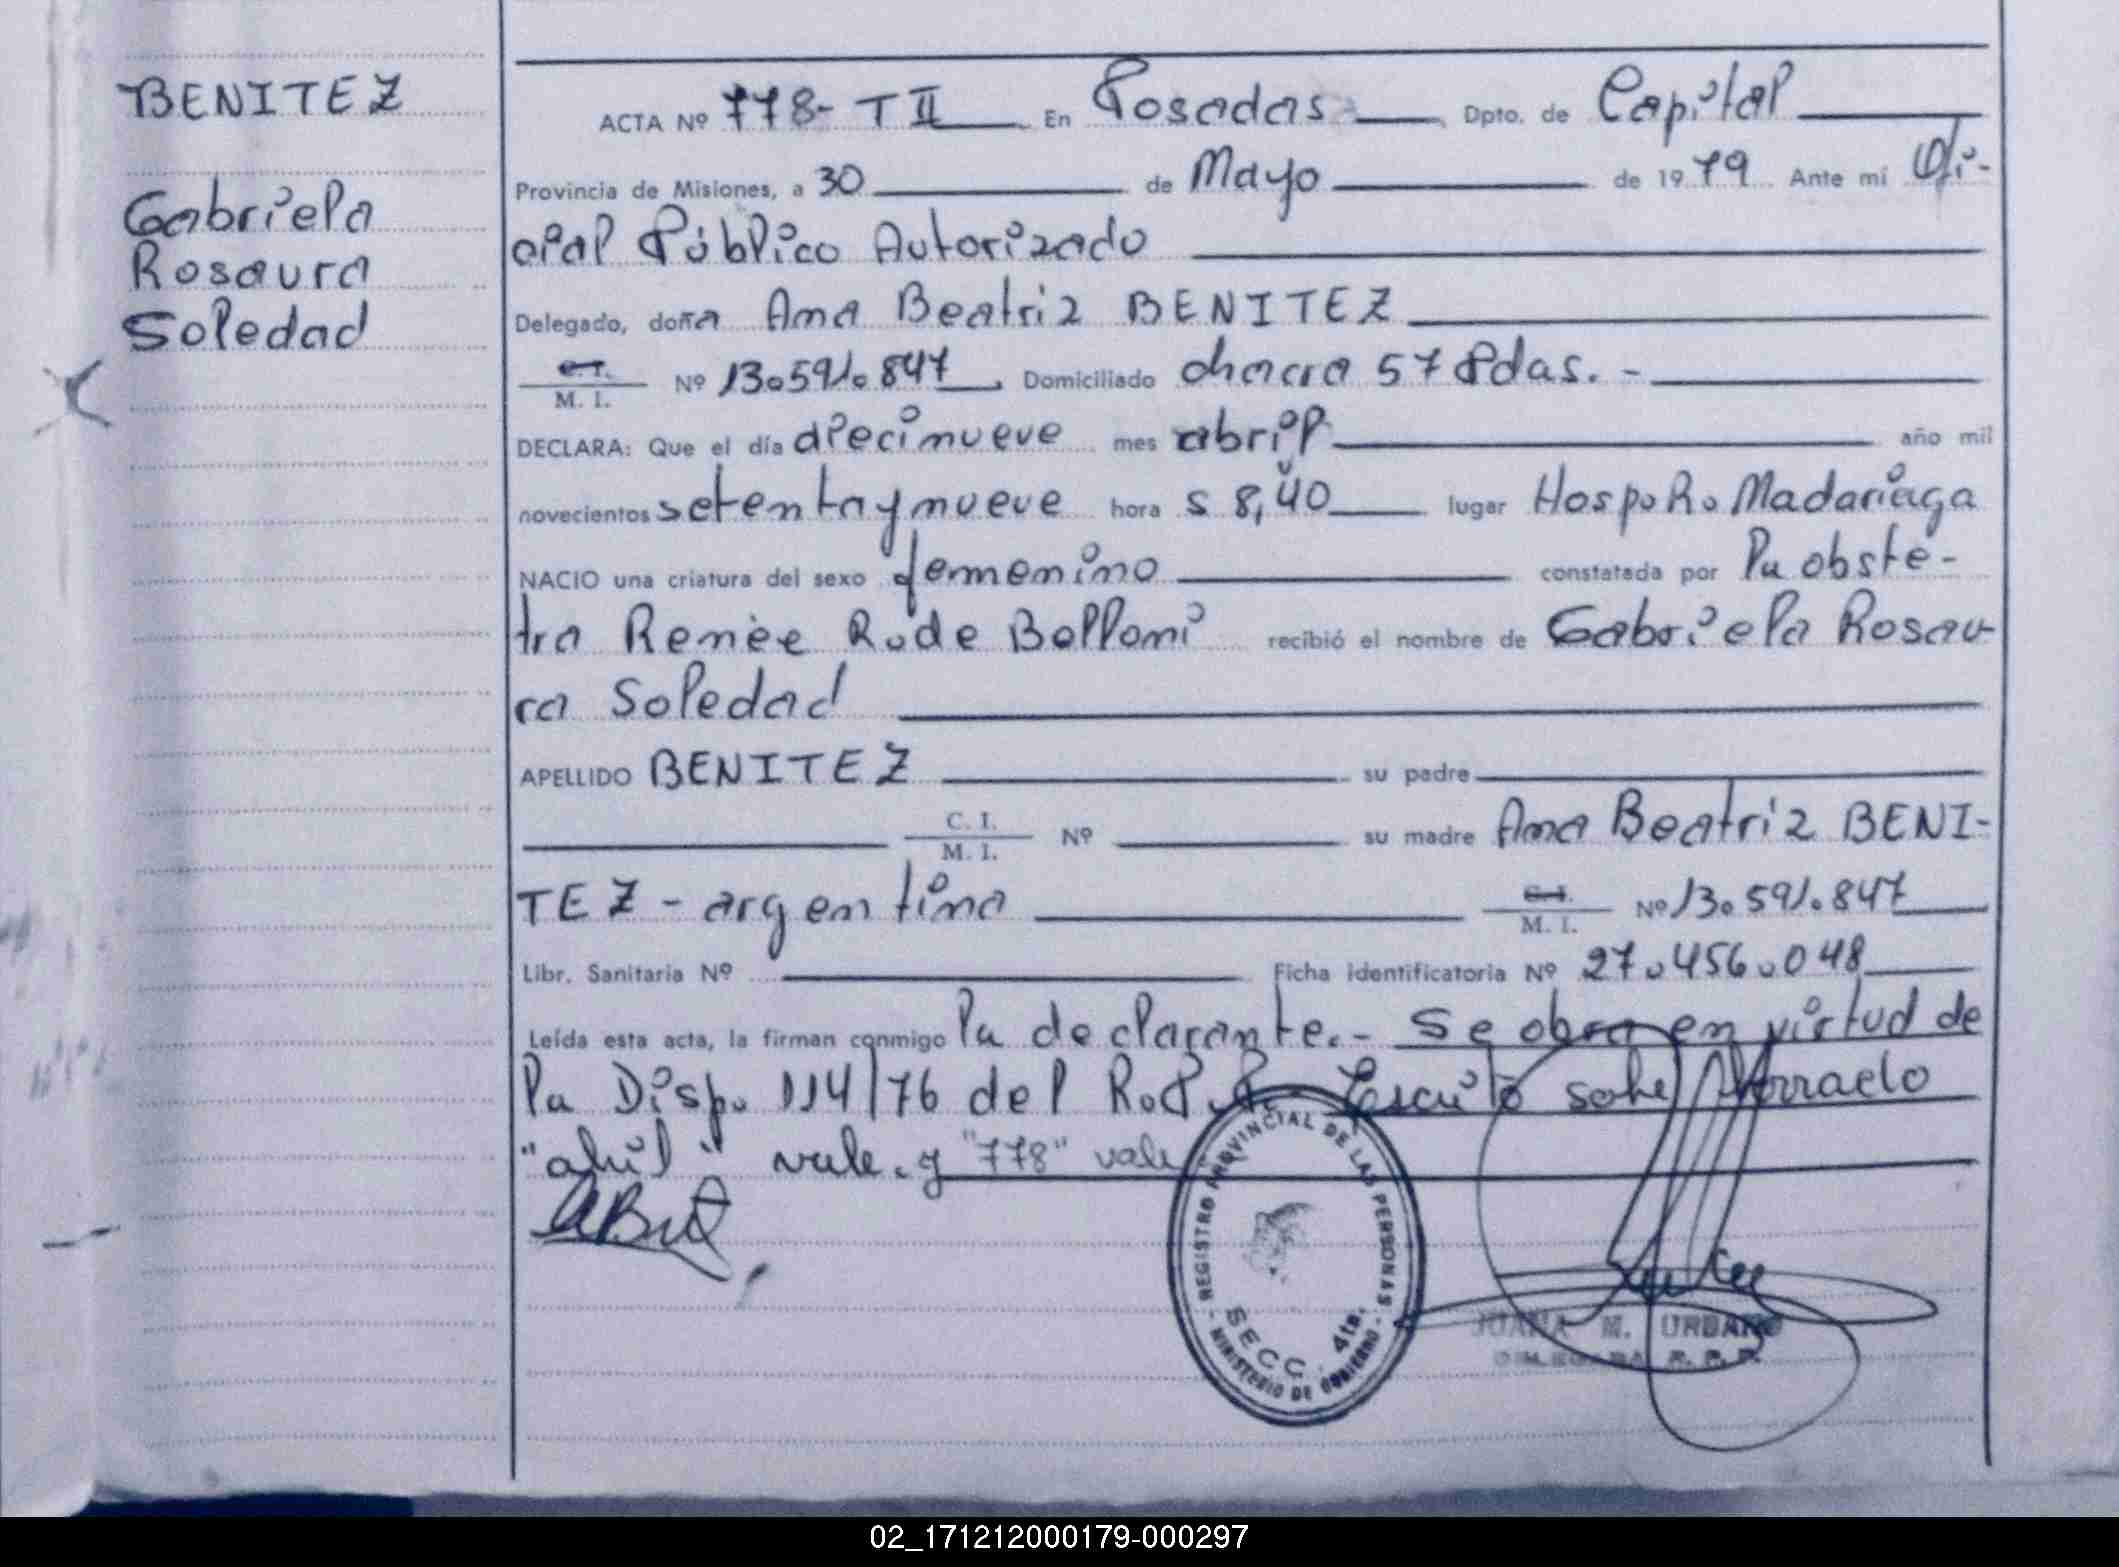 BENITEZ
Gabriela
Rosaura
Soledad
ACTA Nº 778- T II En Posadas Dpto. de Capital
Provincia de Misiones, a 30 de Mayo de 1979 Ante mí Ofi-
cial Público Autorizado
Delegado, doña Ana Beatriz BENITEZ
C.I. M. I. Nº 13.591.847 Domiciliado chacra 57 Pdas. -
DECLARA: Que el día diecinueve mes abril año mil
novecientos setenta y nueve hora s 8,40 lugar Hosp. R. Madariaga
NACIO una criatura del sexo femenino constatada por la obste-
tra Renèe R. de Belloni recibió el nombre de Gabriela Rosau-
ra Soledad
APELLIDO BENITEZ su padre
C. I. M. I. Nº su madre Ana Beatriz BENI-
TEZ - argentina C.I. M. I. Nº 13.591.847
Libr. Sanitaria Nº Ficha identificatoria Nº 27.456.048
Leída esta acta, la firman conmigo la declarante.- Se obra en virtud de
la Disp. 114/76 del R.P.P. Escrito sobre borrado
"abril" vale. y "778" vale
REGISTRO PROVINCIAL DE LAS PERSONAS
SECC. 4ta.
MINISTERIO DE GOBIERNO
JUANA M. URBANO
DELEGADA R. P. P.
02_171212000179-000297